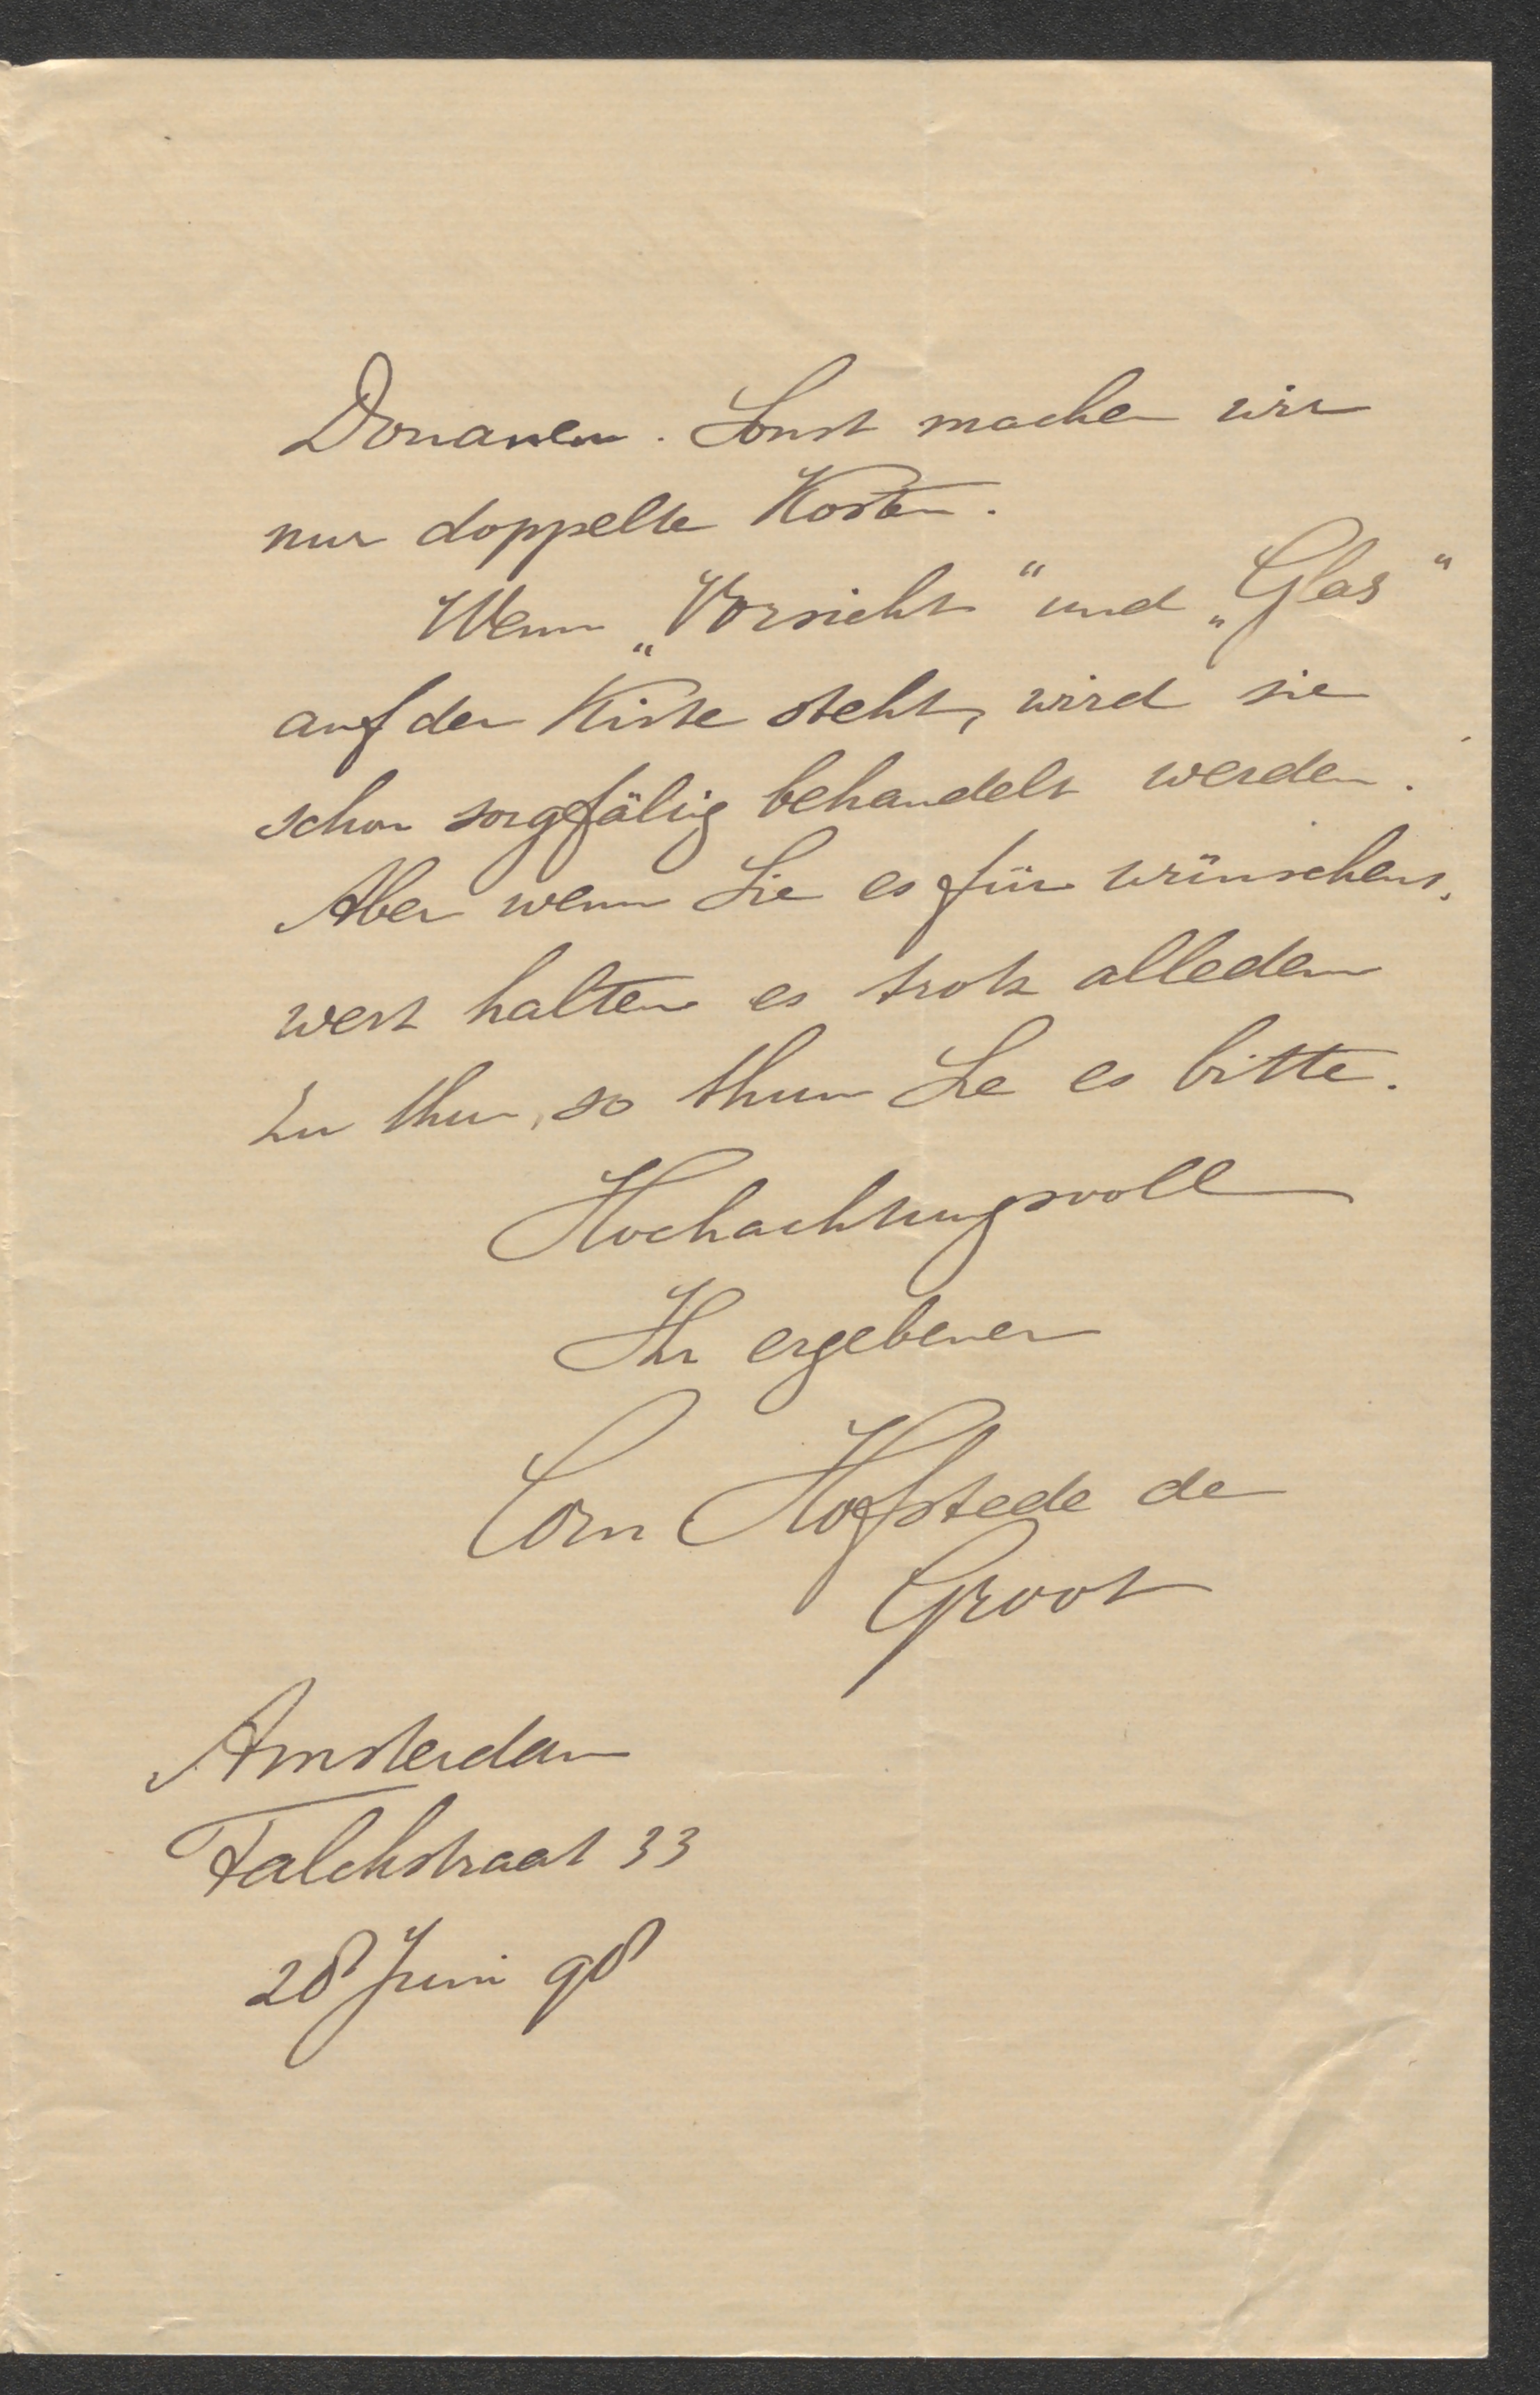 Douanen. Sonst machen wir
nur doppelte Kosten.
Wenn „Vorsicht“ und „Glas“
auf der Kiste steht, wird sie
schon sorgfältig behandelt werden.
Aber wenn Sie es für wünschens-
wert halten es trotz alledem
zu thun, so thun Sie es bitte.
Hochachtungsvoll
Ihr ergebener
Corn Hofstede de
Groot
Amsterdam
Falckstraat 33
28 Juni 98